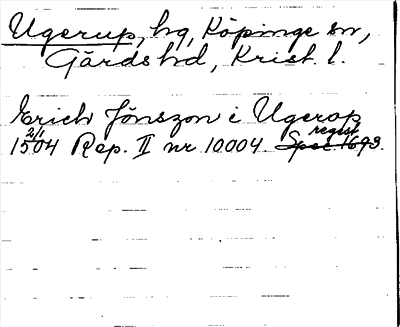 Ugerup, hg, Köpinge sn,
Gärds hd, Krist. l.
Erich Jönszon i Ugerop
2/1 regist
1504 Rep. II nr 10004. Spec. 1693.